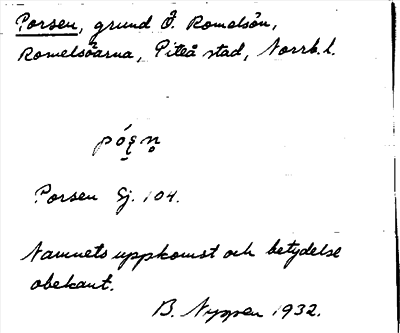 Porsen, grund Ö. Romelsön,
Romelsöarna, Piteå stad, Norrb. l.
Porsen Gj. 104.
Namnets uppkomst och betydelse
obekant.
B. Nyssen 1932.